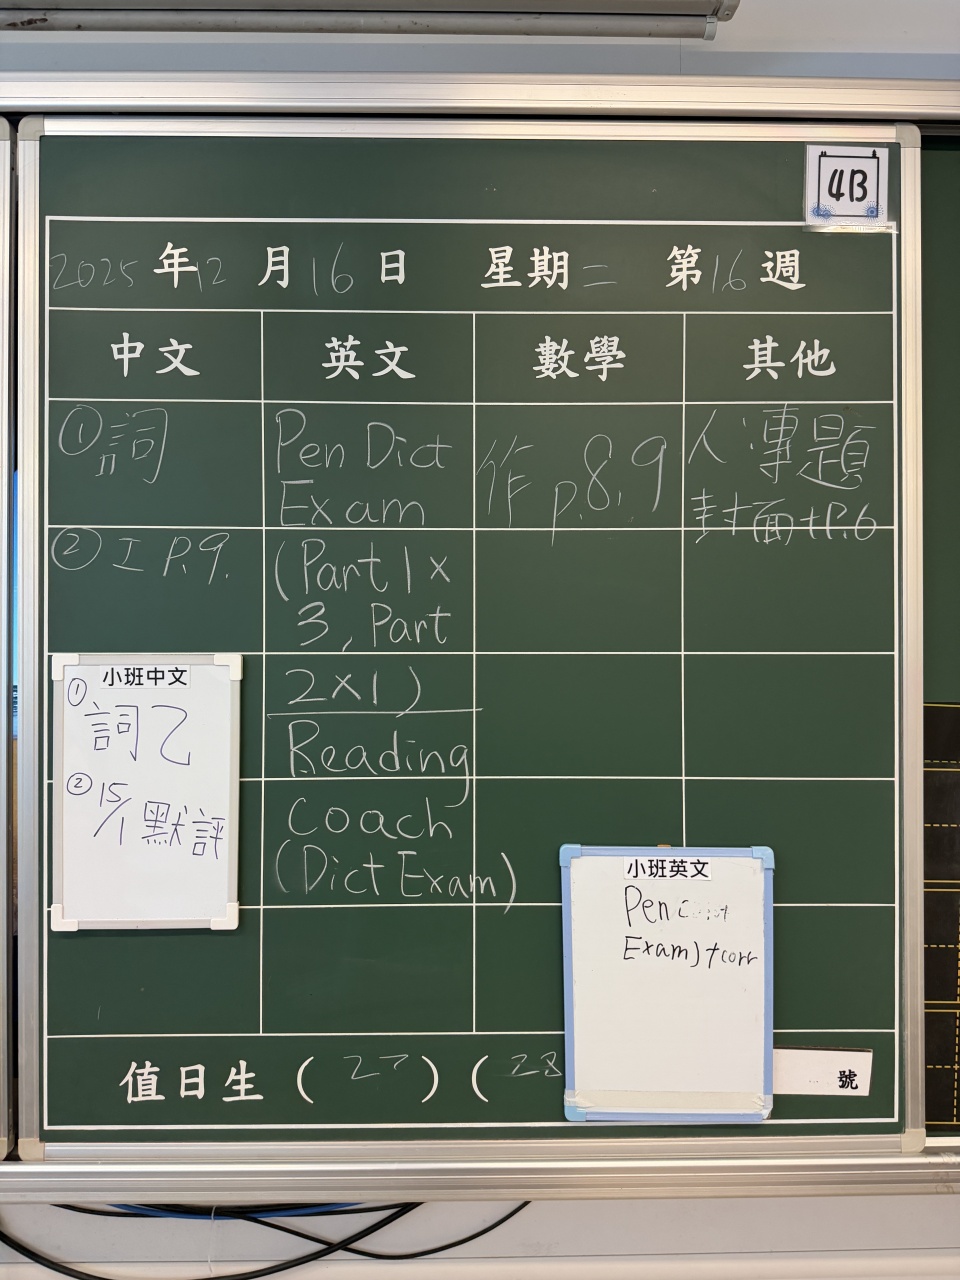 4B
2025年12月16日 星期二 第16週
中文 英文 數學 其他
①詞
②工 P.9.
Pen Dict
Exam
(Part 1 ×
3, Part
2×1)
Reading
Coach
(Dict Exam)
作 p.8,9
人 專題
封面+P.6
小班中文
①
詞乙
②
15/1 默評
小班英文
Pen
Exam)+corr
值日生 ( 27 ) ( 28
號